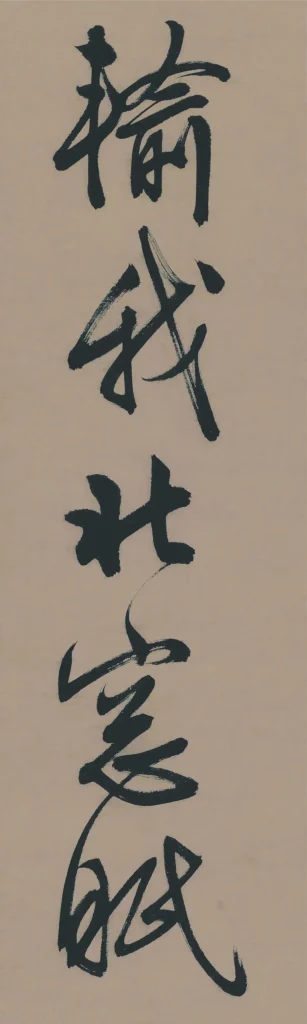 輸我北窗眠